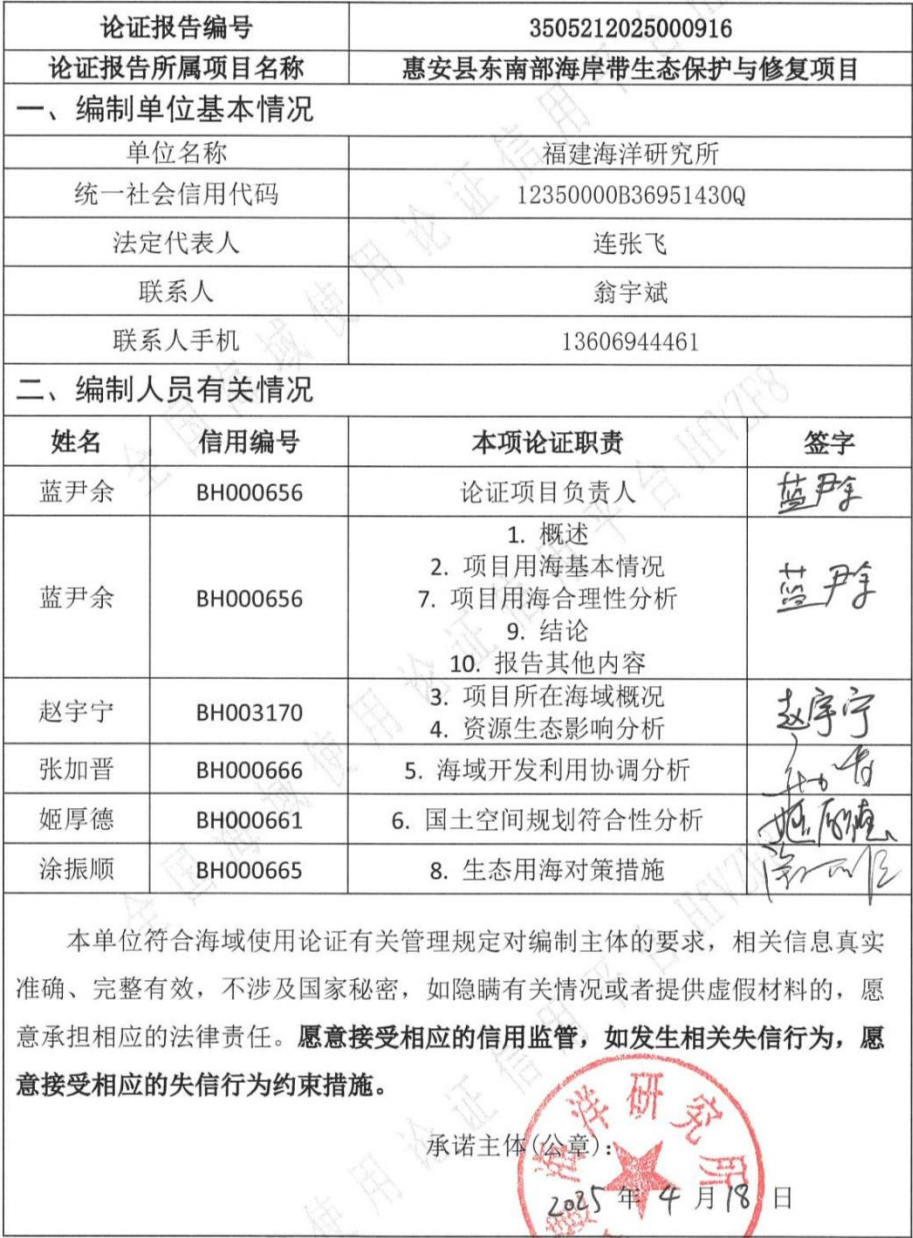 论证报告编号 3505212025000916
论证报告所属项目名称 惠安县东南部海岸带生态保护与修复项目
一、编制单位基本情况
单位名称 福建海洋研究所
统一社会信用代码 12350000B36951430Q
法定代表人 连张飞
联系人 翁宇斌
联系人手机 13606944461
二、编制人员有关情况
姓名 信用编号 本项论证职责 签字
蓝尹余 BH000656 论证项目负责人 蓝尹余
蓝尹余 BH000656 1. 概述
2. 项目用海基本情况
7. 项目用海合理性分析 蓝尹余
9. 结论
10. 报告其他内容
赵宇宁 BH003170 3. 项目所在海域概况
4. 资源生态影响分析 赵宇宁
张加晋 BH000666 5. 海域开发利用协调分析
姬厚德 BH000661 6. 国土空间规划符合性分析 姬厚德
涂振顺 BH000665 8. 生态用海对策措施
本单位符合海域使用论证有关管理规定对编制主体的要求，相关信息真实
准确、完整有效，不涉及国家秘密，如隐瞒有关情况或者提供虚假材料的，愿
意承担相应的法律责任。愿意接受相应的信用监管，如发生相关失信行为，愿
意接受相应的失信行为约束措施。
承诺主体(公章)：
2025 年 4 月 18 日
海洋研究所
全国海域使用论证信用平台 HfVZF8